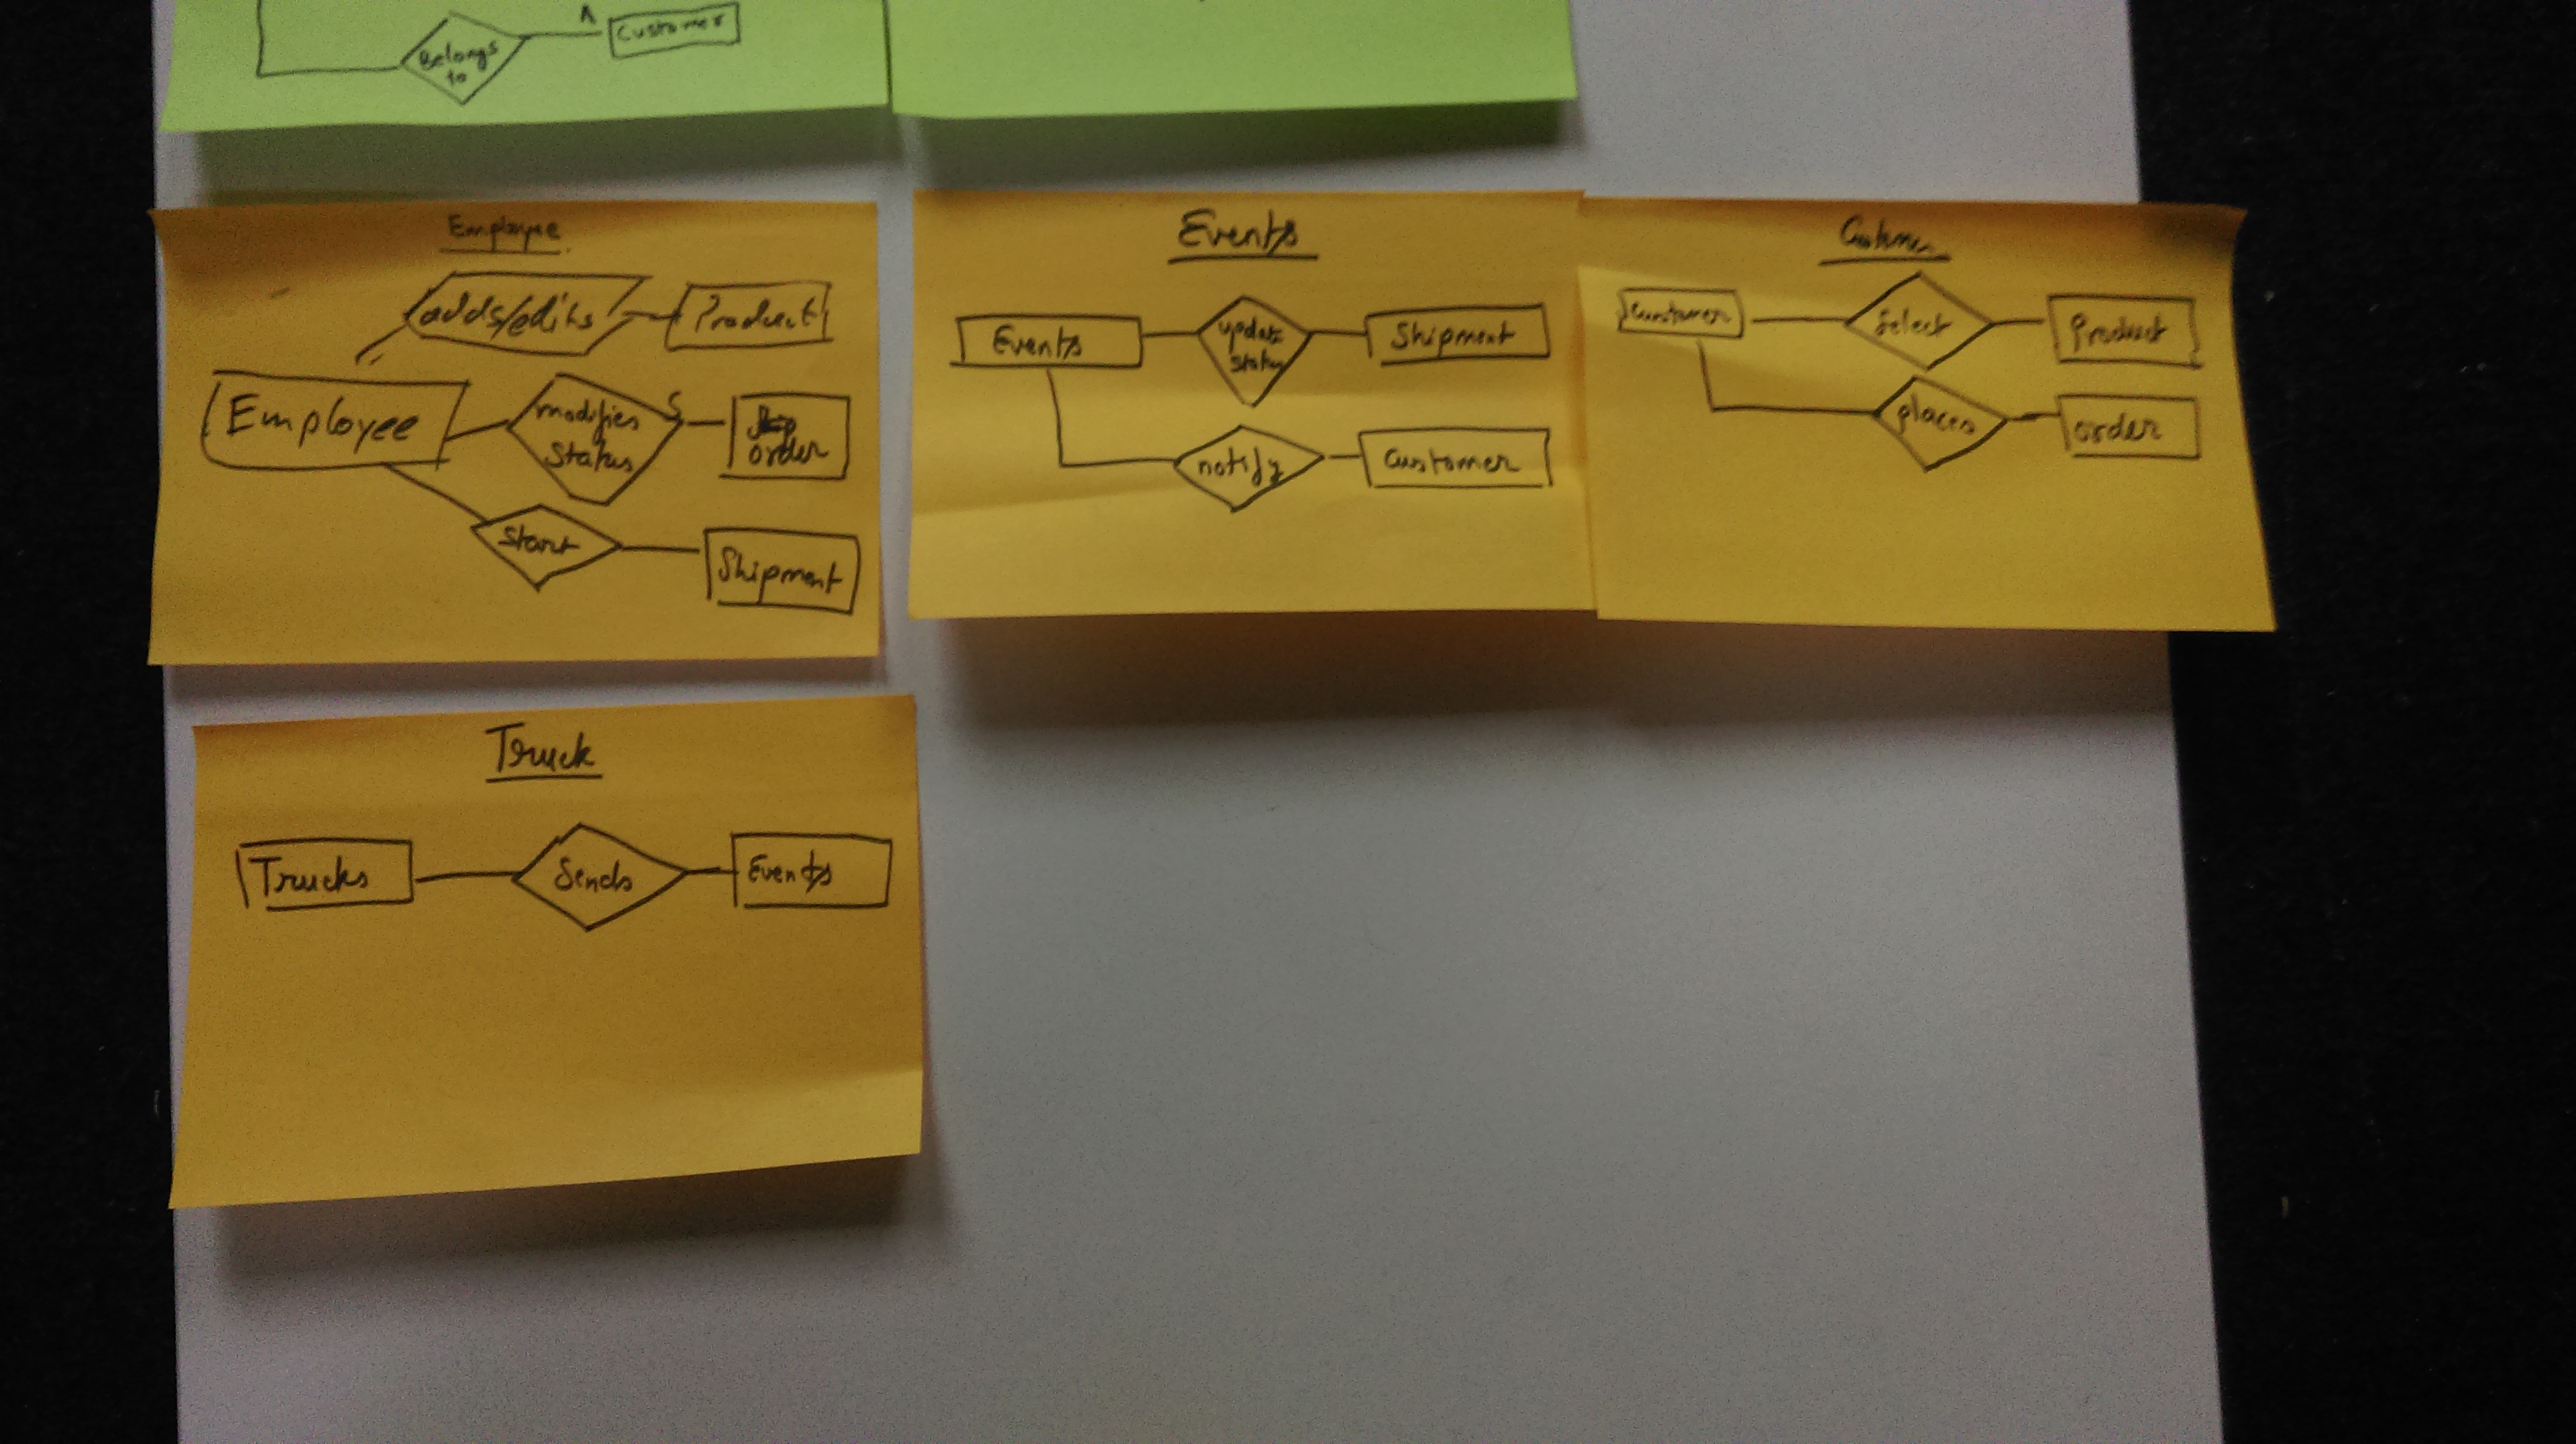 Belongs
to
Customer
Employee
adds/edits
Product
Employee
modifies
status
order
start
Shipment
Events
Events
update
status
Shipment
notify
customer
Customer
select
Product
places
order
Truck
Trucks
Sends
Events